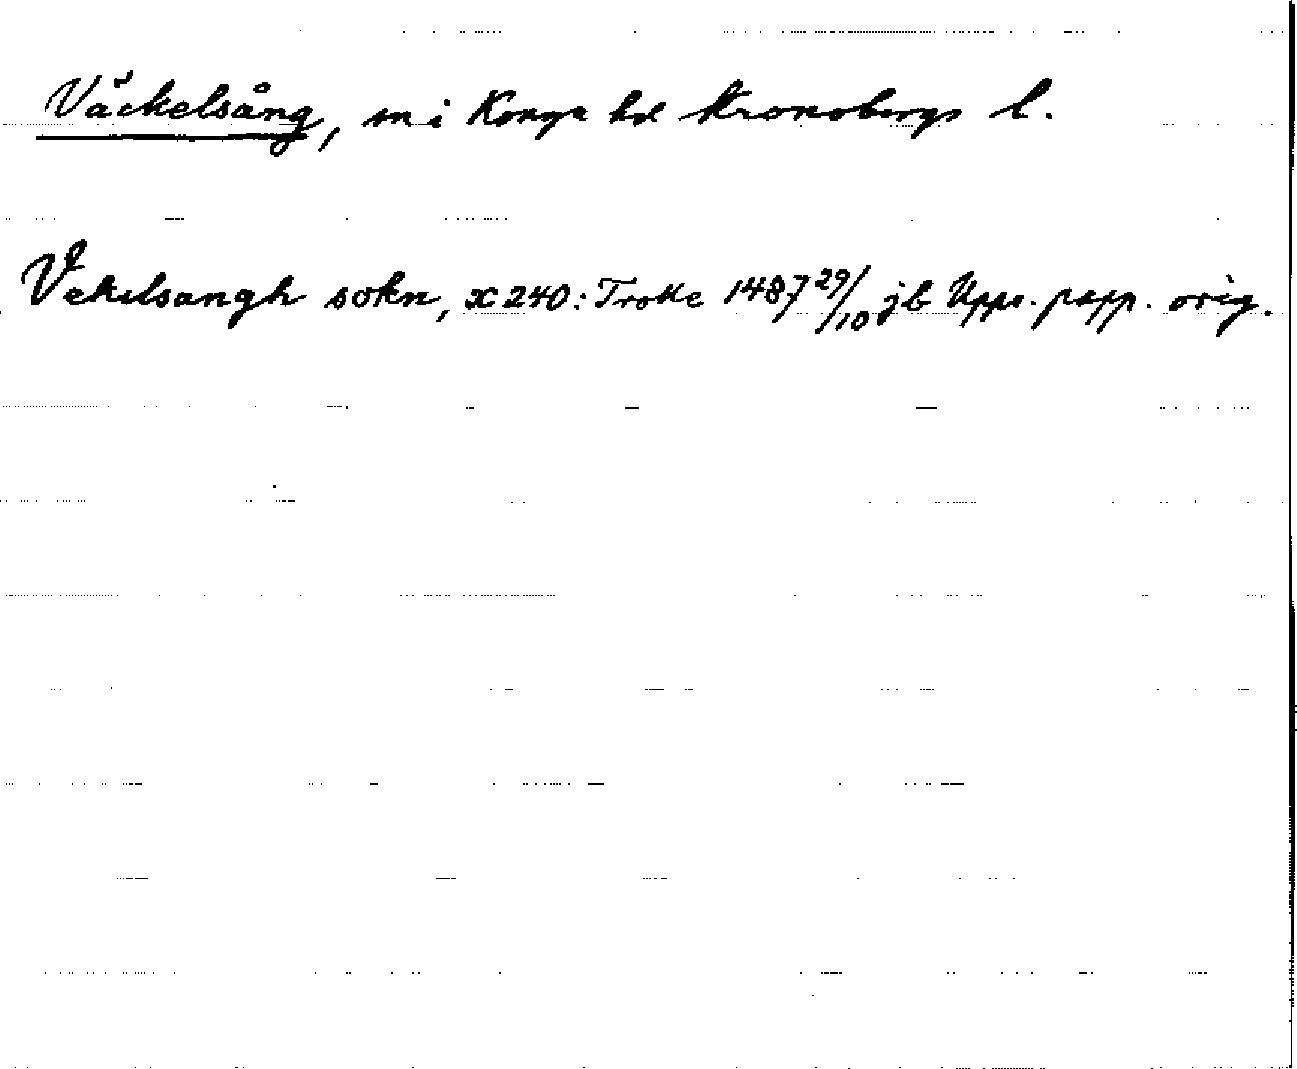 Väckelsång, sn i Konga hd Kronobergs l.
Vekelsangh sokn, x 240: Trolle 1487 29/10 jb Upps. papp. orig.